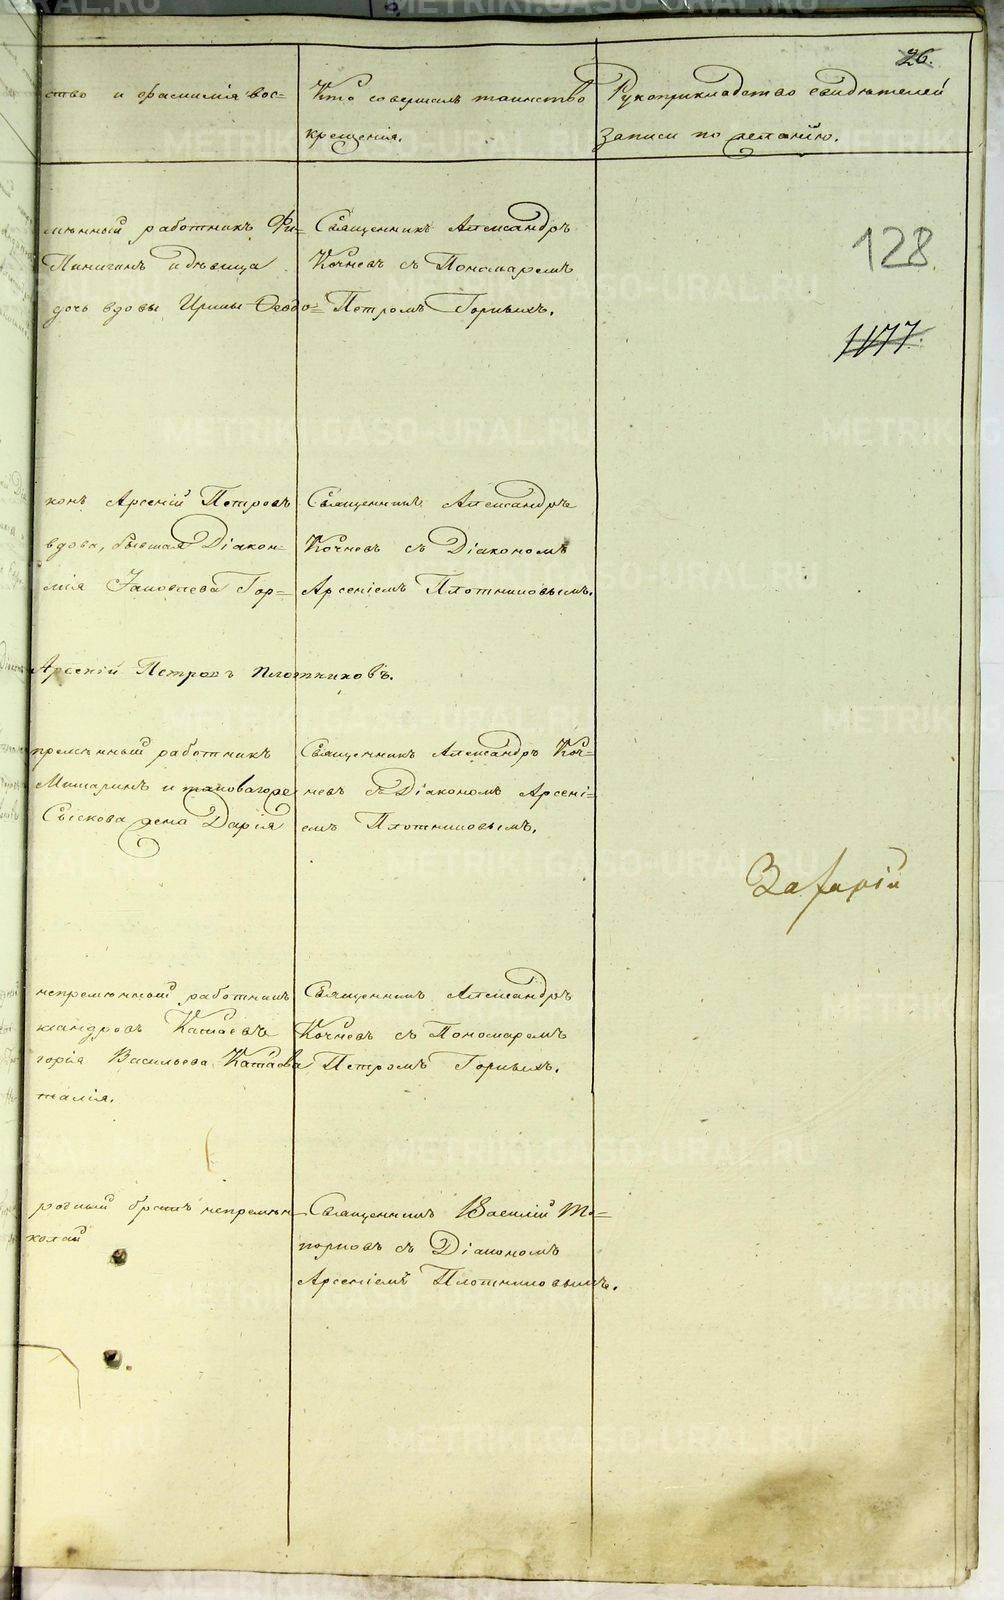 26.
ство и фамилія вос-
Кто совершалъ таинство
Рукоприкладство свидѣтелей
крещенія.
записи по желанію.
128
1177.
мѣнный работникъ Фи-
Священникъ Александръ
Пинигинъ и дѣвица
Кочневъ съ Пономаремъ
дочь вдовы Ирины Ѳеодо-
Петромъ Горныхъ.
конъ Арсеній Петровъ
Священникъ Александръ
вдова, бывшая Діакон-
Кочневъ съ Діакономъ
мія Гор-
Арсеніемъ Плотниковымъ.
Арсеній Петровъ Плотниковъ.
премѣнный работникъ
Священникъ Александръ Коч-
и таковагоже
невъ съ Діакономъ Арсені-
Сыскова жена Дарія
емъ Плотниковымъ.
Захарій
непремѣнный работникъ
Священникъ Александръ
ксандровъ Катаевъ
Кочневъ съ Пономаремъ
горія Васильева Катаева
Петромъ Горныхъ.
талія.
родный братъ непремѣн-
Священникъ Василій То-
колай
порковъ съ Діакономъ
Арсеніемъ Плотниковымъ.
METRIKI.GASO-URAL.RU